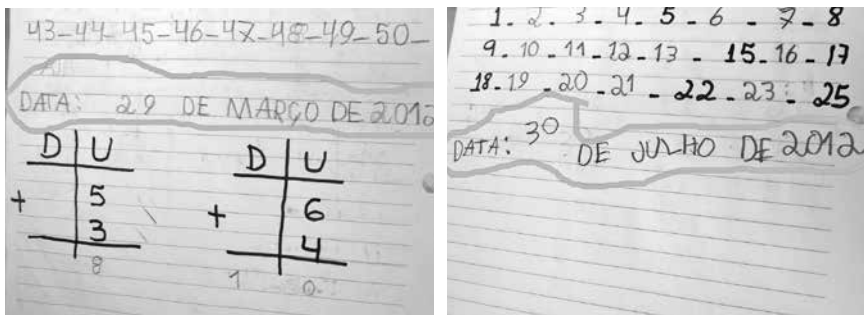 43-44-45-46-47-48-49-50-
DATA: 29 DE MARÇO DE 2012
D U D U
+ 5 + 6
3 4
8 1 0
1. 2. 3. 4. 5 - 6 - 7 - 8
9. 10 - 11 - 12 - 13 - 15. 16 - 17
18 - 19 - 20 - 21 - 22 - 23 - 25
DATA: 30 DE JULHO DE 2012